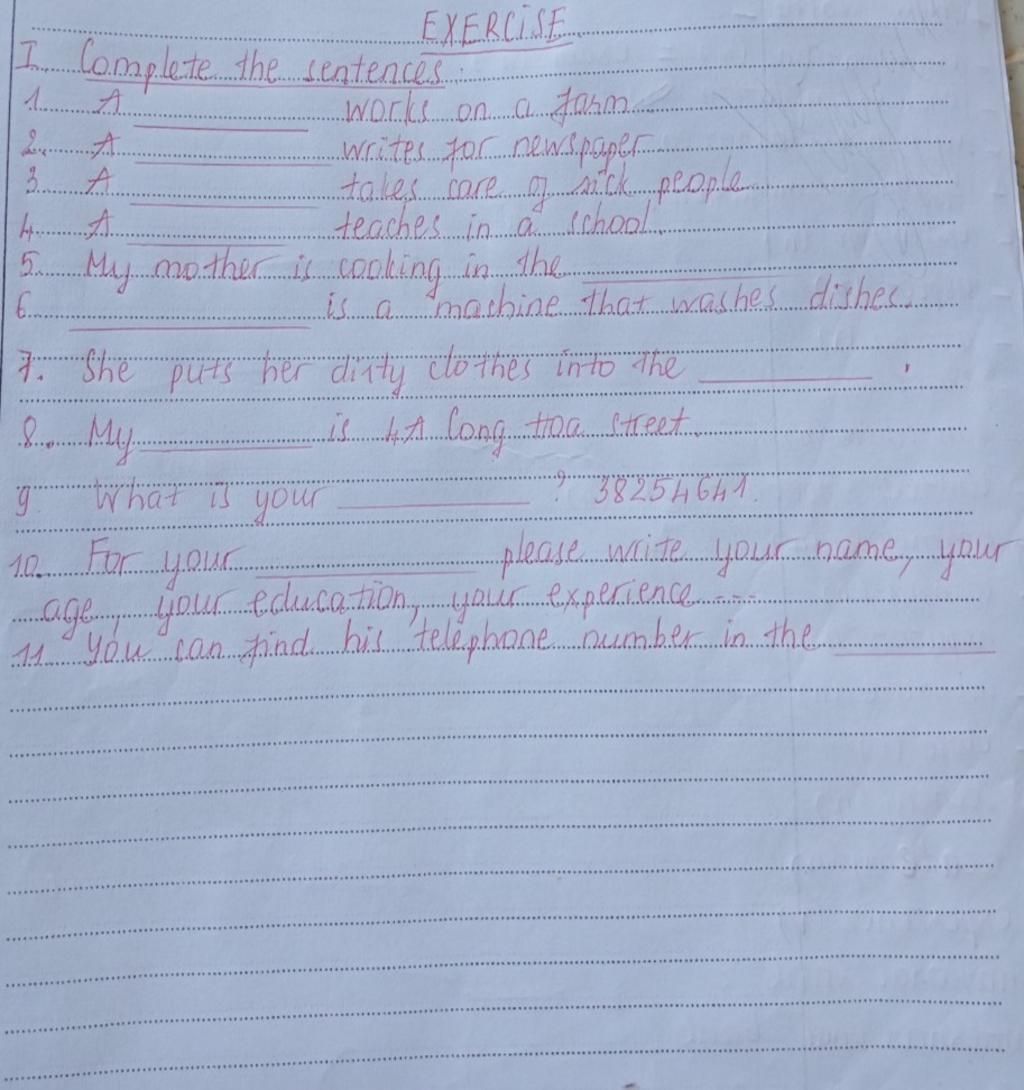 EXERCISE
I. Complete the sentences:
1. A ____________ works on a farm
2. A ____________ writes for newspaper
3. A ____________ takes care of sick people
4. A ____________ teaches in a school
5. My mother is cooking in the ____________
6 ____________ is a machine that washes dishes.
7. She puts her dirty clothes into the ____________ .
8. My ____________ is 4A Cong Hoa street
9 What is your ____________ ? 38254641.
10. For your ____________ please write your name, your
age, your education, your experience ----
11 You can find his telephone number in the ____________